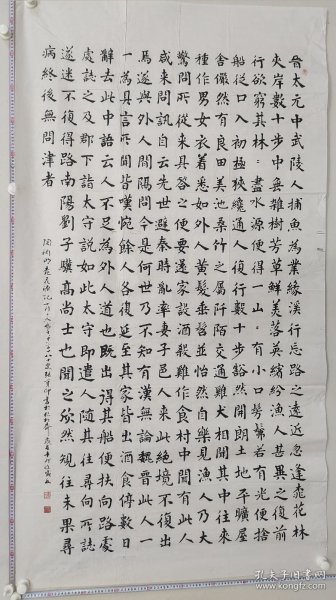 晉太元中武陵人捕魚為業緣溪行忘路之遠近忽逢桃花林
夾岸數十步中無雜樹芳草鮮美落英繽紛漁人甚異之復前
行欲窮其林〻盡水源便得一山〻有小口髣髴若有光便捨
船從口入初極狹纔通人復行數十步豁然開朗土地平曠屋
舍儼然有良田美池桑竹之屬阡陌交通雞犬相聞其中往來
種作男女衣着悉如外人黃髮垂髫並怡然自樂見漁人乃大
驚問所從來具答之便要還家設酒殺雞作食村中聞有此人
咸來問訊自云先世避秦時亂率妻子邑人來此絕境不復出
焉遂與外人間隔問今是何世乃不知有漢無論魏晉此人一
一為具言所聞皆嘆惋餘人各復延至其家皆出酒食停數日
辭去此中語云人不足為外人道也既出得其船便扶向路處
處誌之及郡下詣太守說如此太守即遣人隨其往尋向所誌
遂迷不復得路南陽劉子驥高尚士也聞之欣然規往未果尋
病終後無問津者
陶淵明桃花源記
孔夫子旧书网